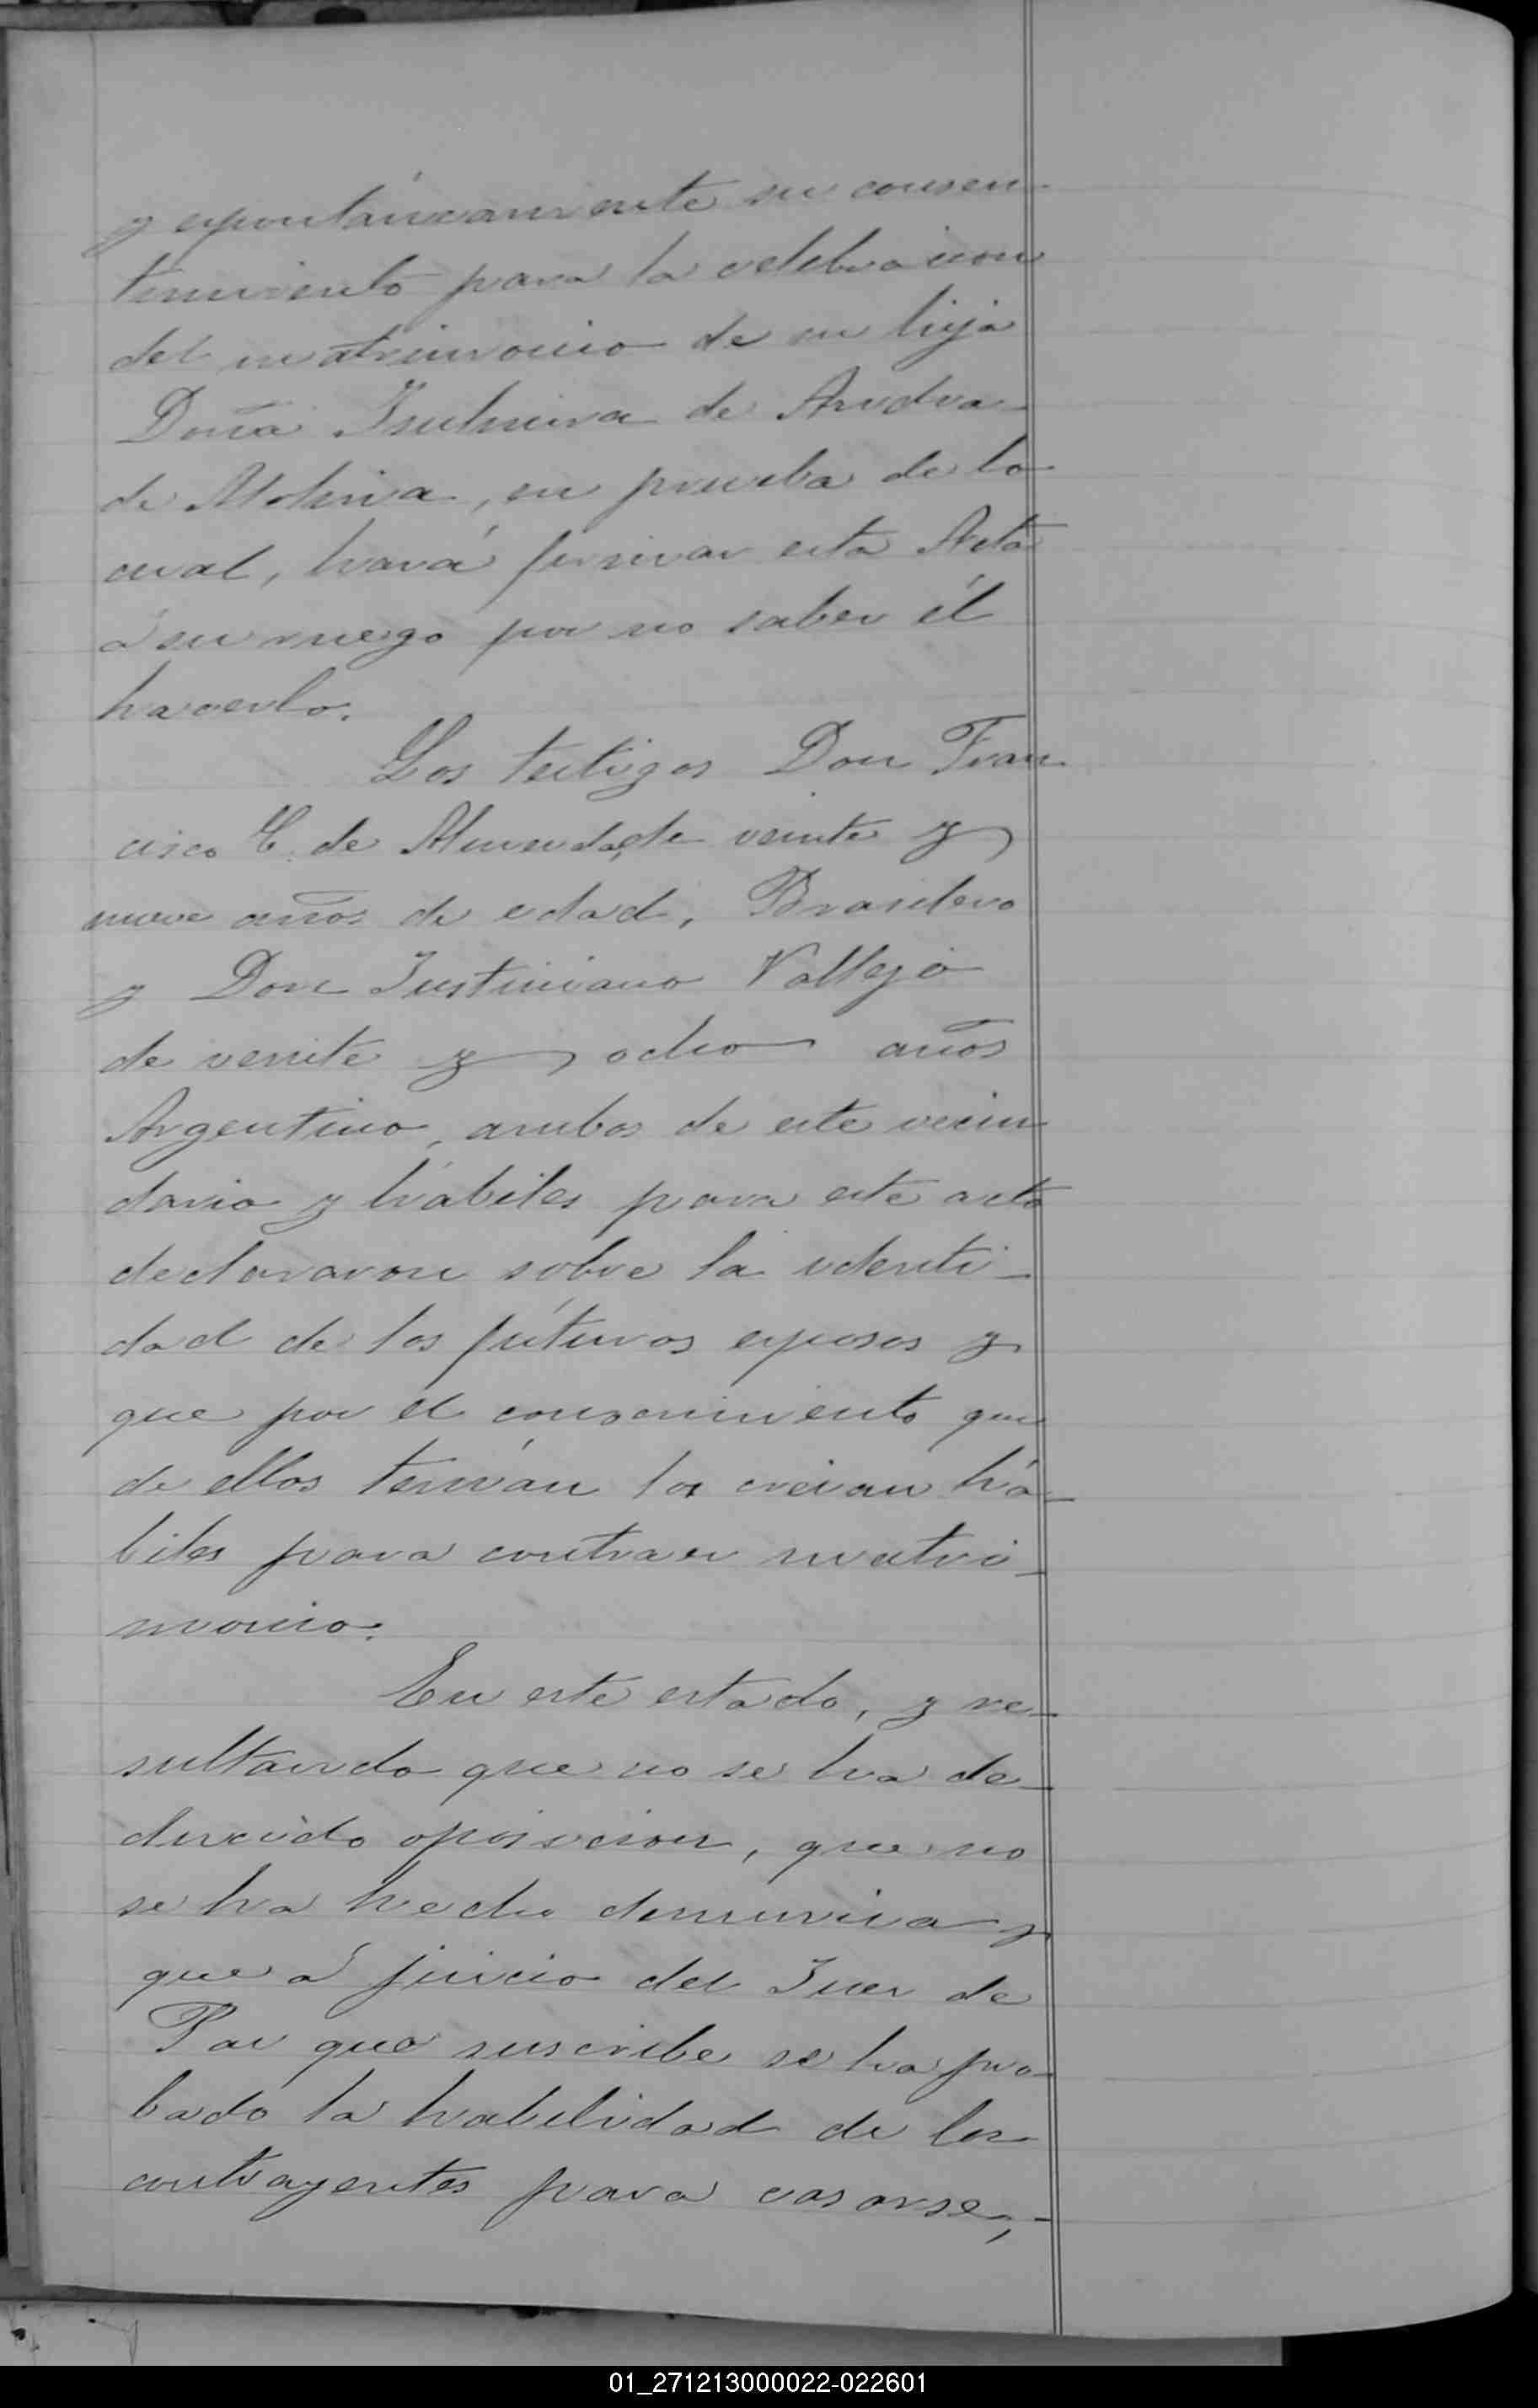 y espontáneamente su consen-
timiento para la celebracion
del matrimonio de su hija
Doña Isulmira de Andra-
de Molina, en prueba de lo
cual, hará firmar esta Acta
á su ruego por no saber él
hacerlo.
Los testigos Don Fran-
cisco C. de Almeida, de veinte y
nueve años de edad, Brasilero
y Don Justiniano Vallejo
de veinte y ocho años
Argentino, ambos de este vecin-
dario y hábiles para este acto
declararon sobre la identi-
dad de los fúturos esposos y
que por el conocimiento que
de ellos tenían los creian há-
biles para contraer matri-
monio.
En este estado, y re-
sultando que no se ha de-
ducido oposicion, que no
se ha hecho denuncia y
que á juicio del Juez de
Paz que suscribe se ha pro-
bado la habilidad de los
contrayentes para casarse,-
01_271213000022-022601